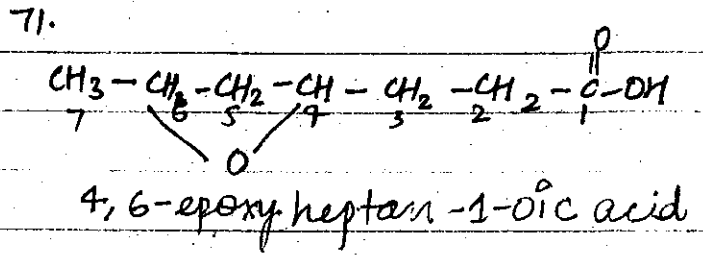 71.
O
CH3 - CH - CH2 - CH - CH2 - CH2 - C - OH
7 6 5 4 3 2 1
O
4, 6-epoxy heptan -1-oic acid